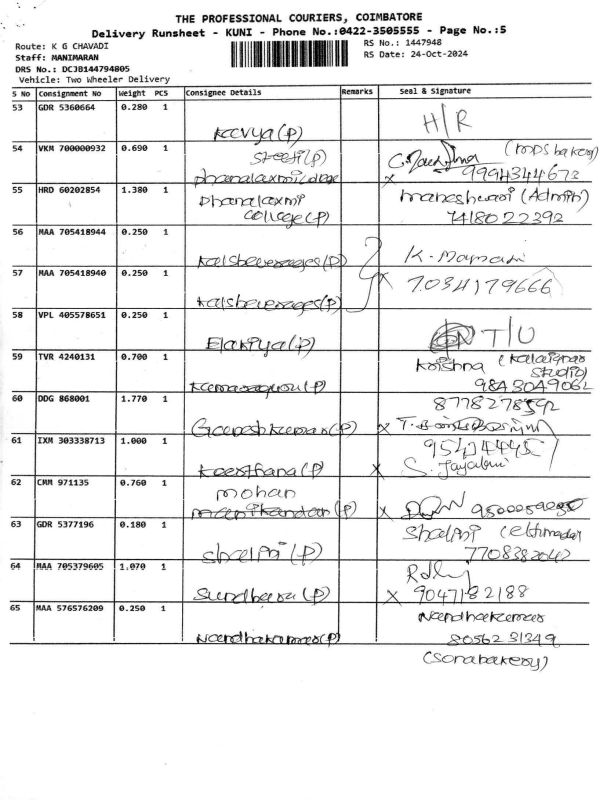 THE PROFESSIONAL COURIERS, COIMBATORE
Delivery Runsheet - KUNI - Phone No.:0422-3505555 - Page No.:5
Route: K G CHAVADI
RS No.: 1447948
Staff: MANIMARAN
RS Date: 24-Oct-2024
DRS No.: DCJB144794805
Vehicle: Two Wheeler Delivery
S No Consignment No Weight PCS Consignee Details Remarks Seal & Signature
53 GDR 5360664 0.280 1
H/R
Kavya(P)
54 VKM 700000932 0.690 1
(P)
9994344673
55 HRD 60202854 1.380 1
Dhanalaxmi
college(P)
maheshwari (Admin)
7418022392
56 MAA 705418944 0.250 1
Kalsbeverages(P)
K. Mamani
57 MAA 705418940 0.250 1
7034179666
Kalsbeverages(P)
58 VPL 405578651 0.250 1
T/U
Elakiya(P)
59 TVR 4240131 0.700 1
Krishna (Kalaignar
studio)
9843049062
(P)
60 DDG 868001 1.770 1
8778278592
Ganeshkumar(P)
61 IXM 303338713 1.000 1
Keerthana(P)
S. Jayalaxmi
62 CMM 971135 0.760 1
mohan
manikandan(P)
63 GDR 5377196 0.180 1
Shalini
Shalini(P)
64 MAA 705379605 1.070 1
Sundheera(P)
9047182188
65 MAA 576576209 0.250 1
Nandhakumar
Nandhakumar(P)
8056231349
(Sonabakery)